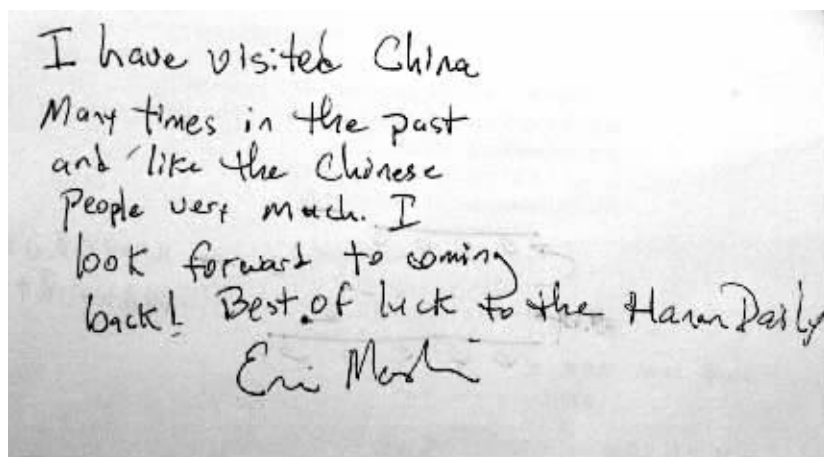 I have visited China
Many times in the past
and like the Chinese
People very much. I
look forward to coming
back! Best of luck to the Henan Daily
Eric